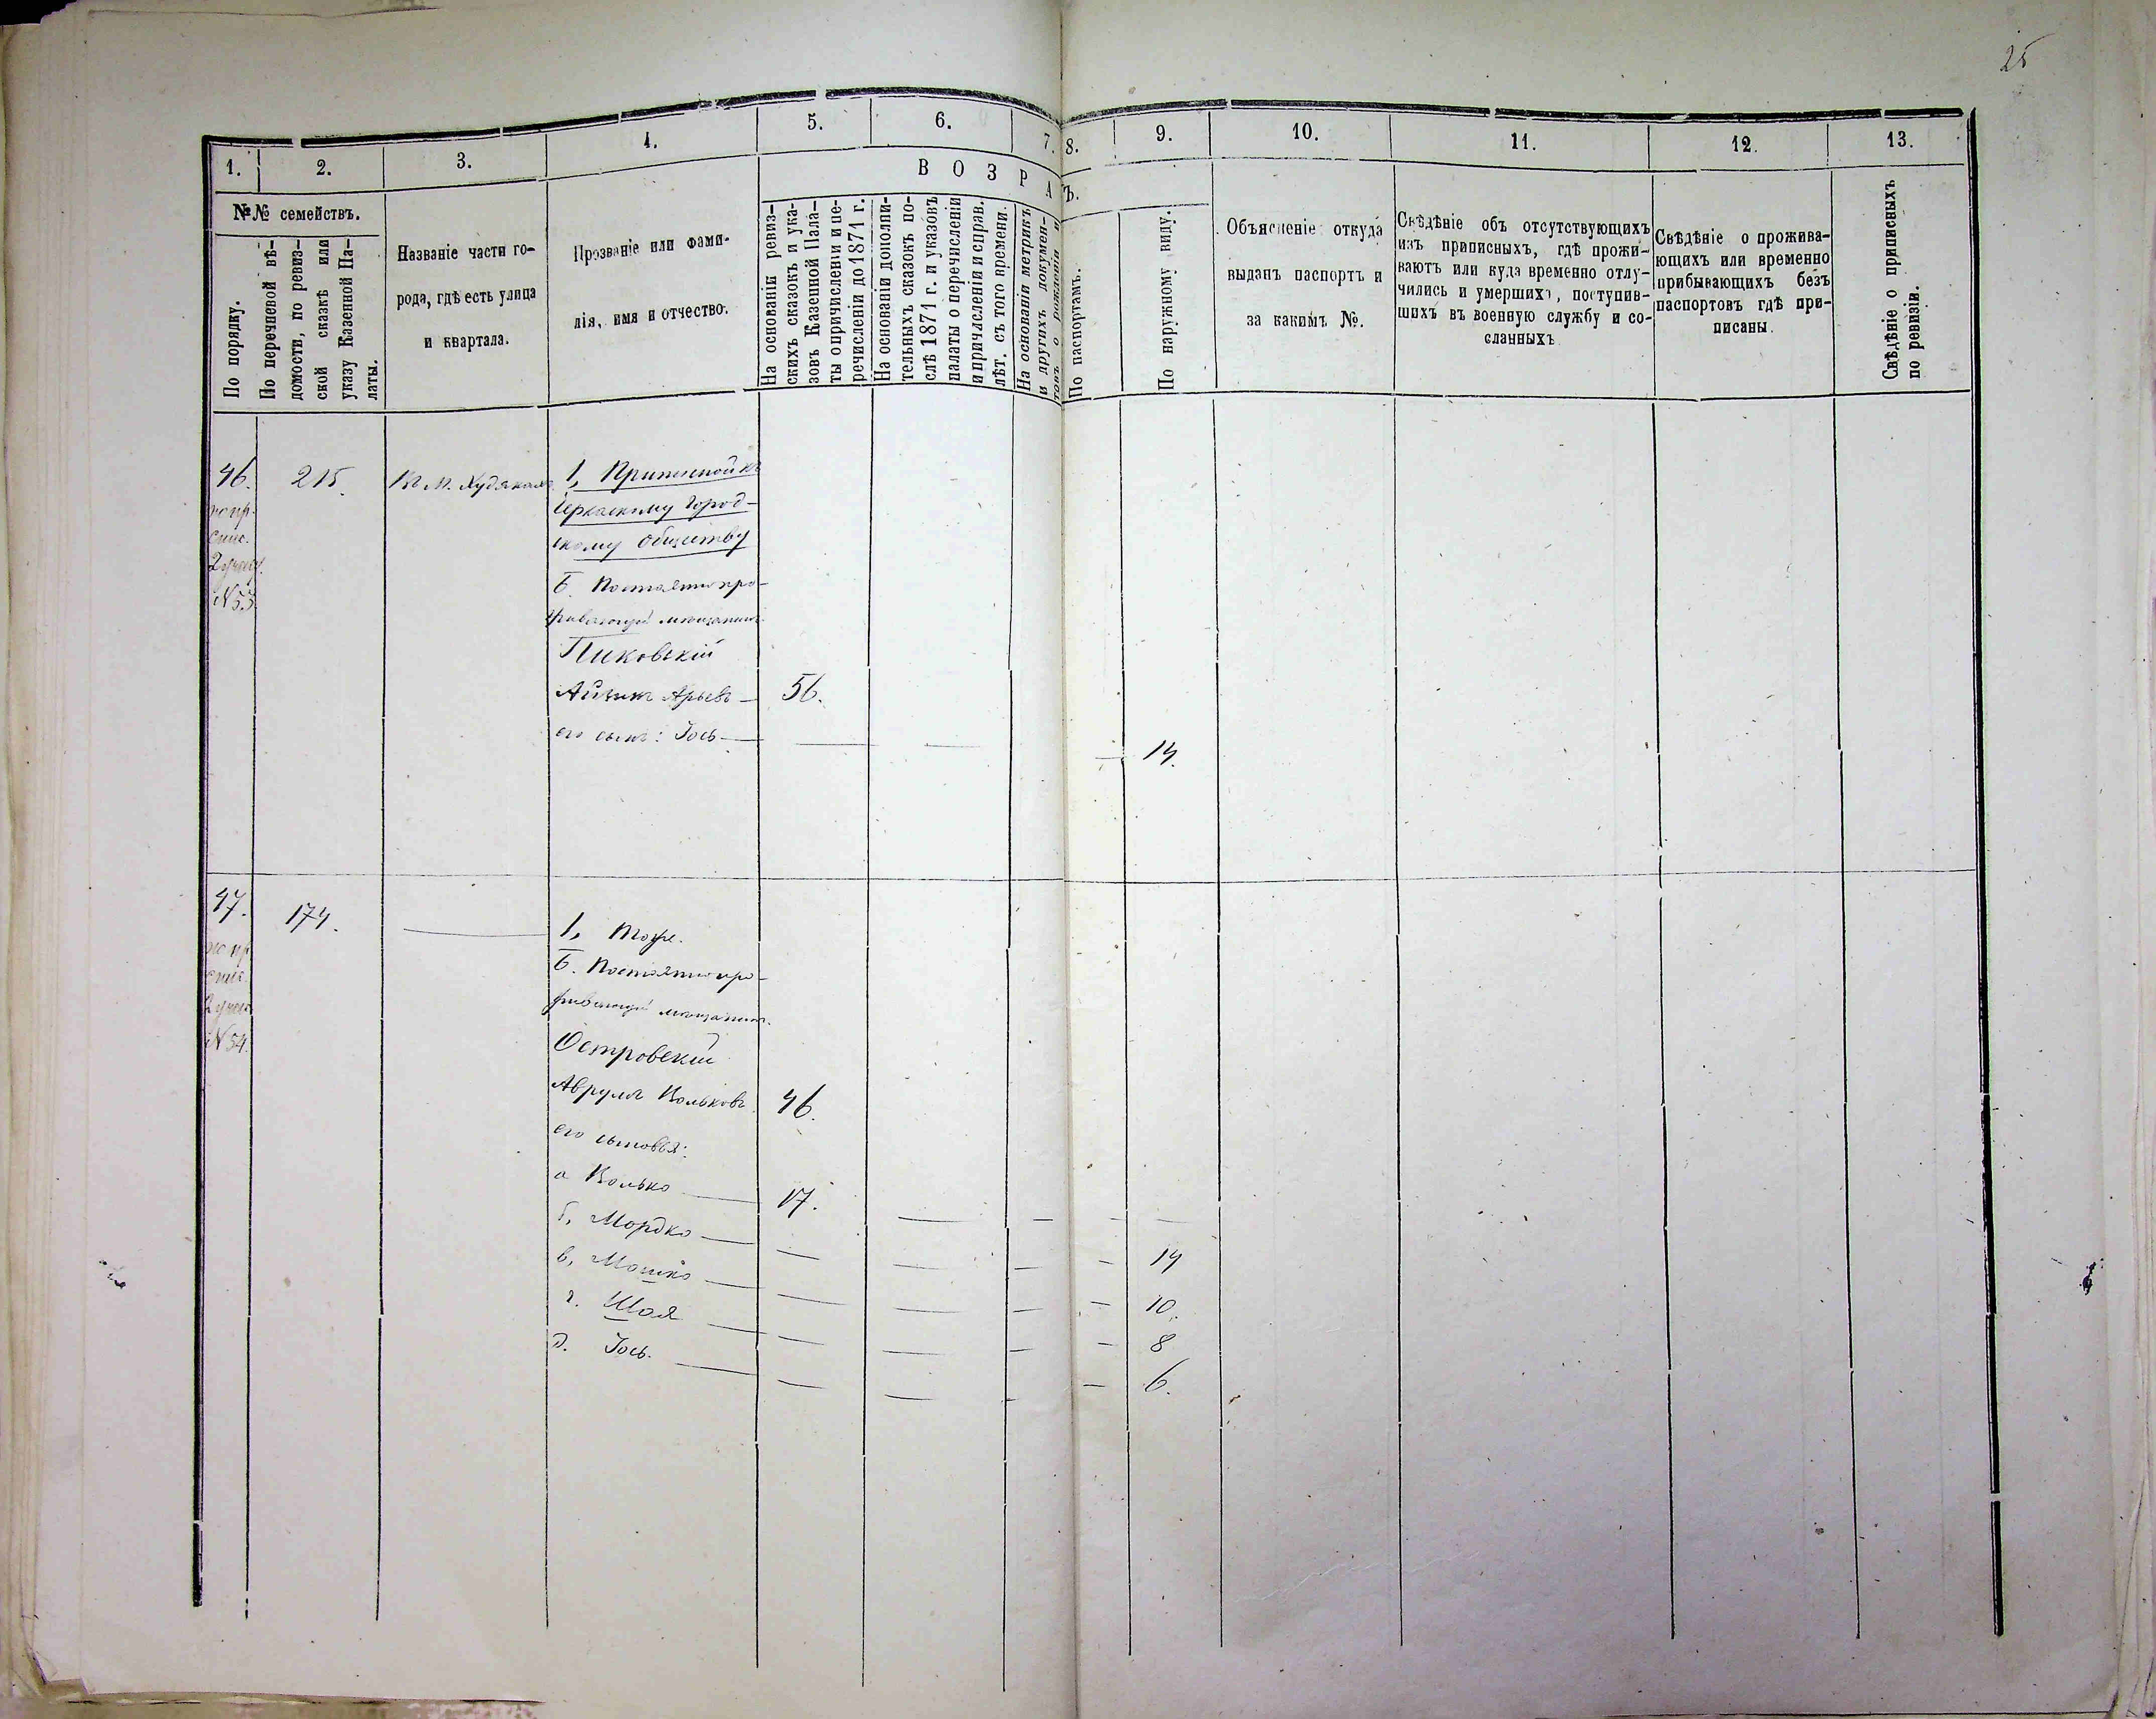 25
1.
2.
3.
4.
5.
6.
7.
8.
9.
10.
11.
12.
13.
№№ семействъ.
По порядку.
По перечневой вѣ-
домости, по ревиз-
ской сказкѣ или
указу Казенной Па-
латы.
Названіе части го-
рода, гдѣ есть улица
и квартала.
Прозваніе или фами-
лія, имя и отчество.
ВОЗРА
Ъ.
На основаніи ревиз-
скихъ сказокъ и ука-
зовъ Казенной Пала-
ты о причисленіи и пе-
речисленіи до 1871 г.
На основаніи дополни-
тельныхъ сказокъ по-
слѣ 1871 г. и указовъ
палаты о перечисленіи
и причисленіи и справ.
лѣт. съ того времени.
На основаніи метрикъ
и другихъ докумен-
товъ о рожденіи и
По паспортамъ.
По наружному виду.
Объясненіе откуда
выданъ паспортъ и
за какимъ №.
Свѣдѣніе объ отсутствующихъ
изъ приписныхъ, гдѣ прожи-
ваютъ или куда временно отлу-
чились и умершихъ, поступив-
шихъ въ военную службу и со-
сланныхъ
Свѣдѣніе о прожива-
ющихъ или временно
прибывающихъ безъ
паспортовъ гдѣ при-
писаны.
Свѣдѣніе о приписныхъ
по ревизіи.
46. 215. Въ М. Худякахъ 1, Приписной къ
по пр. Черкаскому город-
спис. скому обществу
2 участ. Б. Постоянно про-
№ 53 живающій мѣщанинъ
Пиковскій
Айзикъ Арьевъ — 56.
его сынъ: Іось — 14.
47. 174. — 1, Тоже.
по пр. Б. Постоянно про-
спис. живающій мѣщанин.
2 участ
№ 54. Островскій
Аврумъ Вольковъ 46.
его сыновья:
а Волько — 17.
б, Мордко — 14
в, Мошко — 10.
г. Шая — 8
д. Іось. — 6.